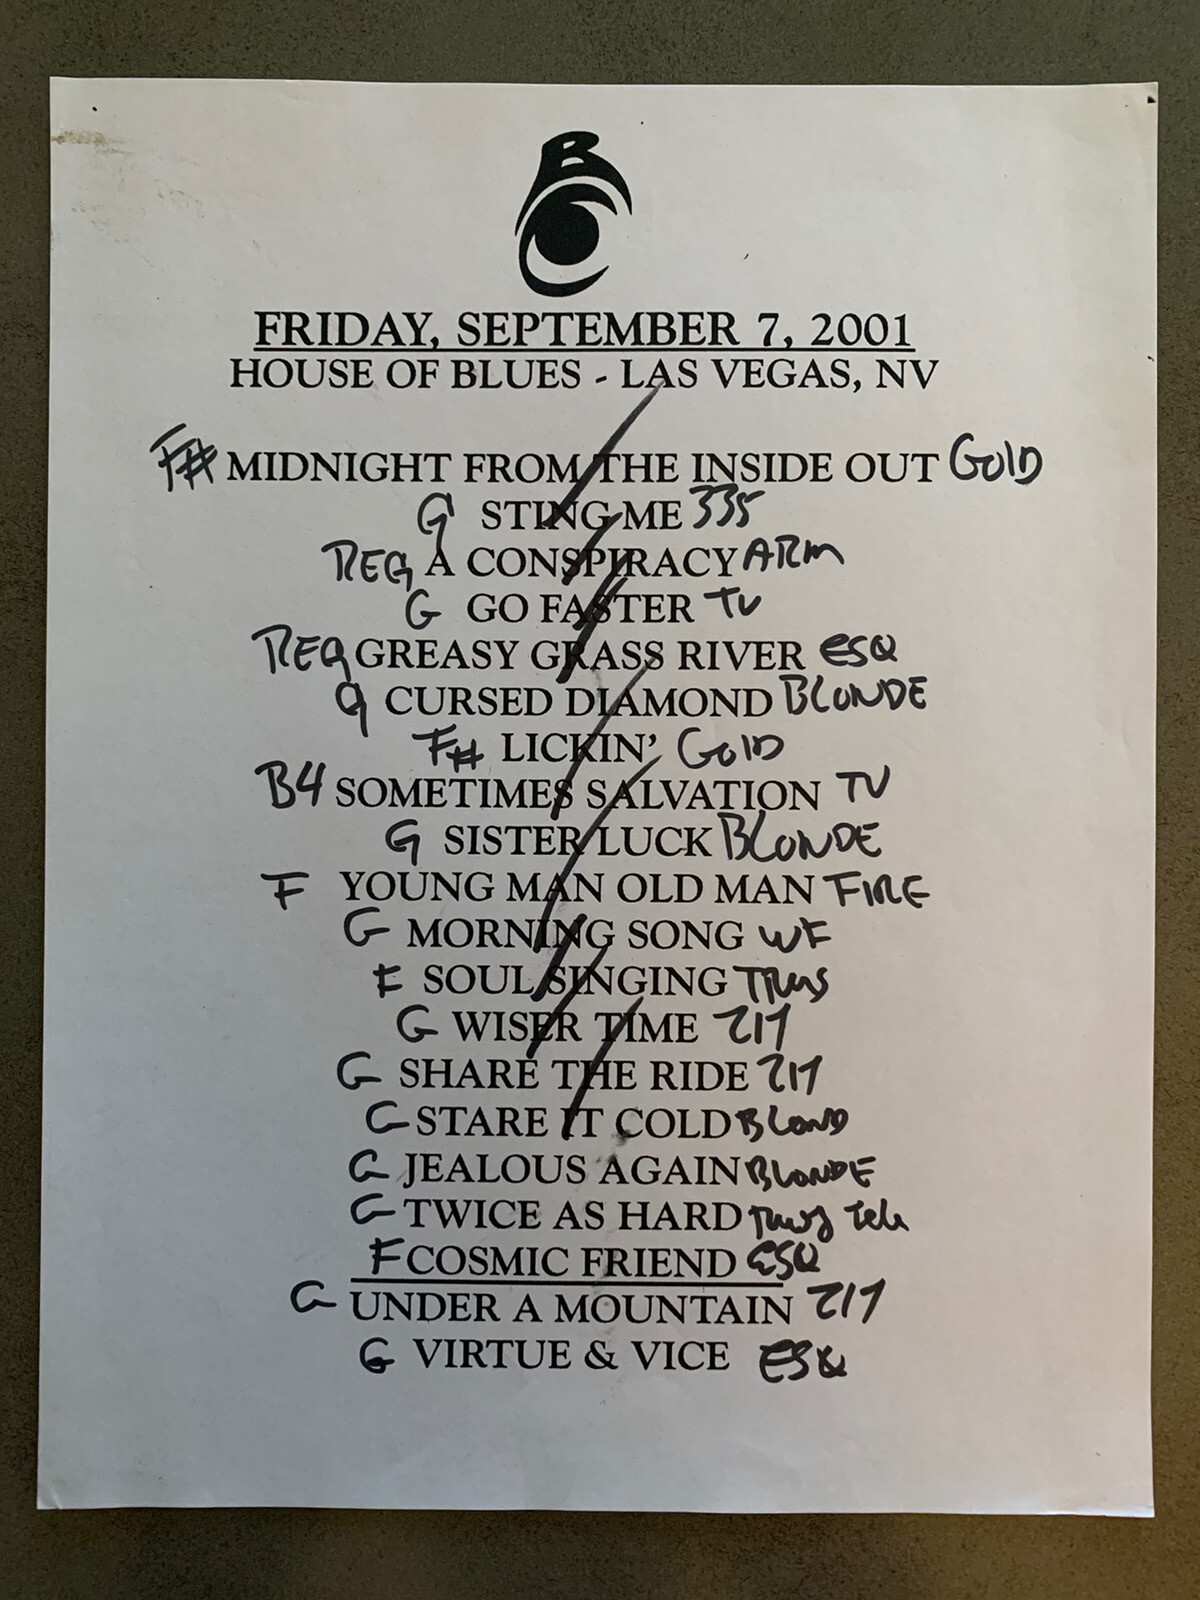 B
FRIDAY, SEPTEMBER 7, 2001
HOUSE OF BLUES - LAS VEGAS, NV
F# MIDNIGHT FROM THE INSIDE OUT GOLD
G STING ME 335
REG A CONSPIRACY ARM
G GO FASTER TV
REG GREASY GRASS RIVER ESQ
G CURSED DIAMOND BLONDE
F# LICKIN' GOLD
B4 SOMETIMES SALVATION TV
G SISTER LUCK BLONDE
F YOUNG MAN OLD MAN FIRE
G MORNING SONG WF
F SOUL SINGING
G WISER TIME Z17
G SHARE THE RIDE Z17
G STARE IT COLD BLOND
G JEALOUS AGAIN BLONDE
G TWICE AS HARD Tele
F COSMIC FRIEND ESQ
G UNDER A MOUNTAIN Z17
G VIRTUE & VICE ESQ